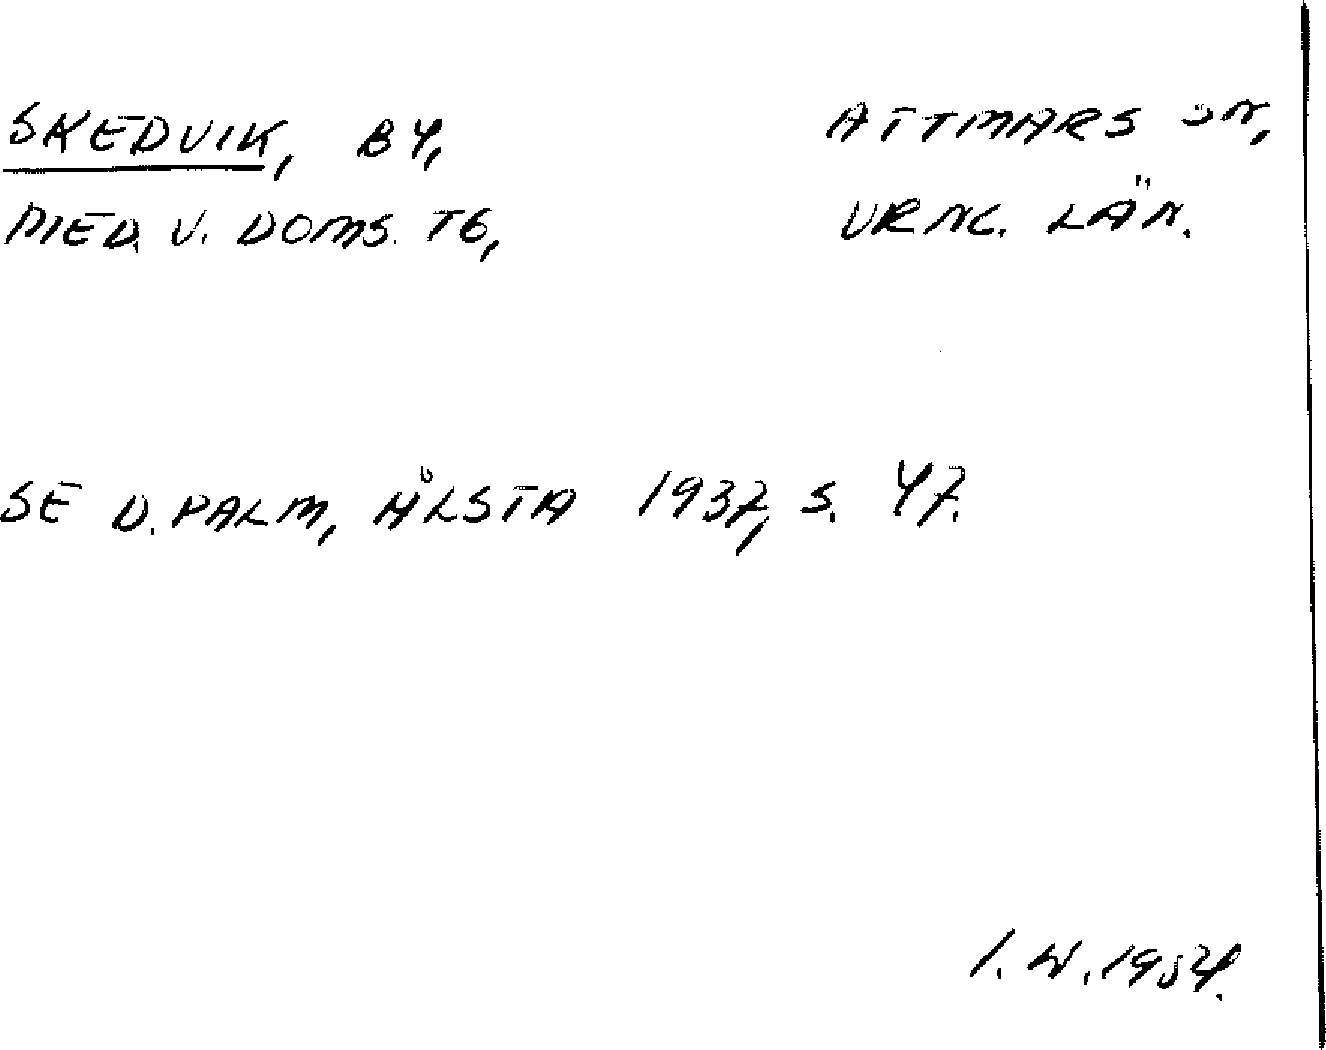 SKEDVIK, BY, ATTMARS SN,
MED. V. DOMS. TG, VRNL. LÄN.
SE D. PALM, ÅLSTA 1937, S. 47.
I. W. 1954.